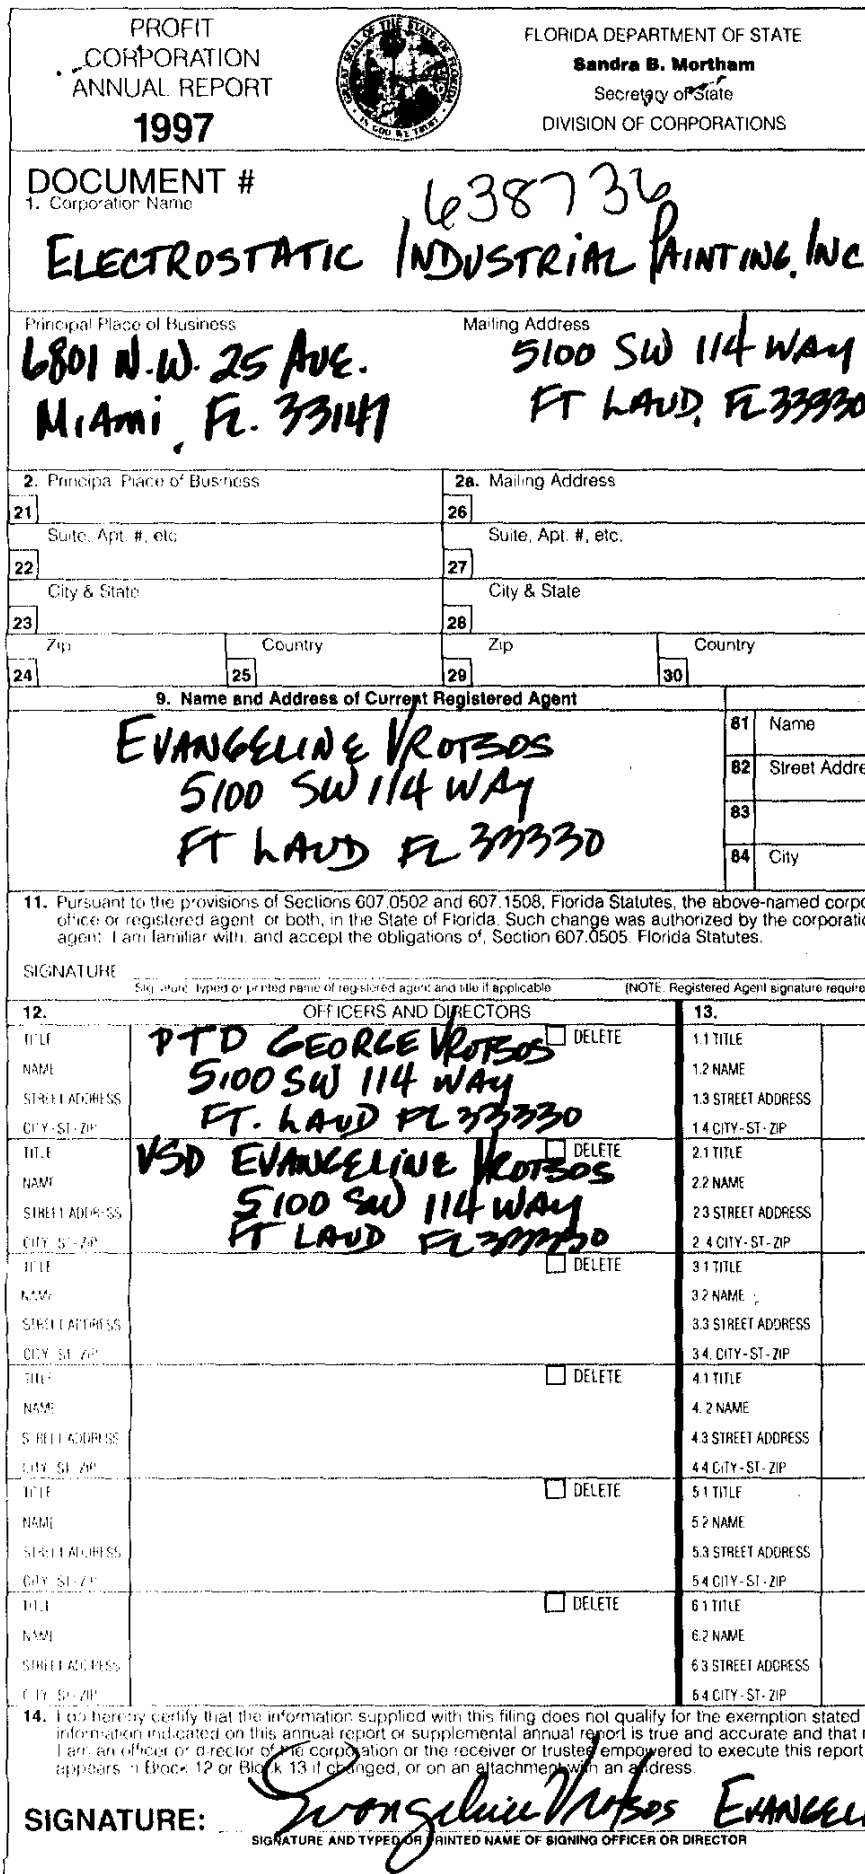 PROFIT
CORPORATION
ANNUAL REPORT
1997
GREAT SEAL OF THE STATE OF FLORIDA
IN GOD WE TRUST
FLORIDA DEPARTMENT OF STATE
Sandra B. Mortham
Secretary of State
DIVISION OF CORPORATIONS
DOCUMENT # 638736
1. Corporation Name
ELECTROSTATIC INDUSTRIAL PAINTING, INC
Principal Place of Business
6801 N.W. 25 AVE.
MIAMI, FL. 33147
Mailing Address
5100 SW 114 WAY
FT LAUD, FL 33330
2. Principal Place of Business
2a. Mailing Address
21
26
Suite, Apt. #, etc.
Suite, Apt. #, etc.
22
27
City & State
City & State
23
28
Zip
Country
Zip
Country
24
25
29
30
9. Name and Address of Current Registered Agent
EVANGELINE VROTSOS
5100 SW 114 WAY
FT LAUD FL 33330
81 Name
82 Street Addre
83
84 City
11. Pursuant to the provisions of Sections 607.0502 and 607.1508, Florida Statutes, the above-named corpo
office or registered agent, or both, in the State of Florida. Such change was authorized by the corporatio
agent. I am familiar with, and accept the obligations of, Section 607.0505, Florida Statutes.
SIGNATURE
Signature, typed or printed name of registered agent and title if applicable
(NOTE: Registered Agent signature require
12. OFFICERS AND DIRECTORS
13.
TITLE PTD GEORGE VROTSOS DELETE
NAME
STREET ADDRESS 5100 SW 114 WAY
CITY-ST-ZIP FT. LAUD FL 33330
1.1 TITLE
1.2 NAME
1.3 STREET ADDRESS
1.4 CITY-ST-ZIP
TITLE VSD EVANGELINE VROTSOS DELETE
NAME
STREET ADDRESS 5100 SW 114 WAY
CITY-ST-ZIP FT LAUD FL 33330
2.1 TITLE
2.2 NAME
2.3 STREET ADDRESS
2.4 CITY-ST-ZIP
TITLE DELETE
NAME
STREET ADDRESS
CITY-ST-ZIP
3.1 TITLE
3.2 NAME
3.3 STREET ADDRESS
3.4. CITY-ST-ZIP
TITLE DELETE
NAME
STREET ADDRESS
CITY-ST-ZIP
4.1 TITLE
4.2 NAME
4.3 STREET ADDRESS
4.4 CITY-ST-ZIP
TITLE DELETE
NAME
STREET ADDRESS
CITY-ST-ZIP
5.1 TITLE
5.2 NAME
5.3 STREET ADDRESS
5.4 CITY-ST-ZIP
TITLE DELETE
NAME
STREET ADDRESS
CITY-ST-ZIP
6.1 TITLE
6.2 NAME
6.3 STREET ADDRESS
6.4 CITY-ST-ZIP
14. I do hereby certify that the information supplied with this filing does not qualify for the exemption stated
information indicated on this annual report or supplemental annual report is true and accurate and that
I am an officer or director of the corporation or the receiver or trustee empowered to execute this report
appears in Block 12 or Block 13 if changed, or on an attachment with an address.
SIGNATURE: Evangeline Vrotsos EVANGELI
SIGNATURE AND TYPED OR PRINTED NAME OF SIGNING OFFICER OR DIRECTOR